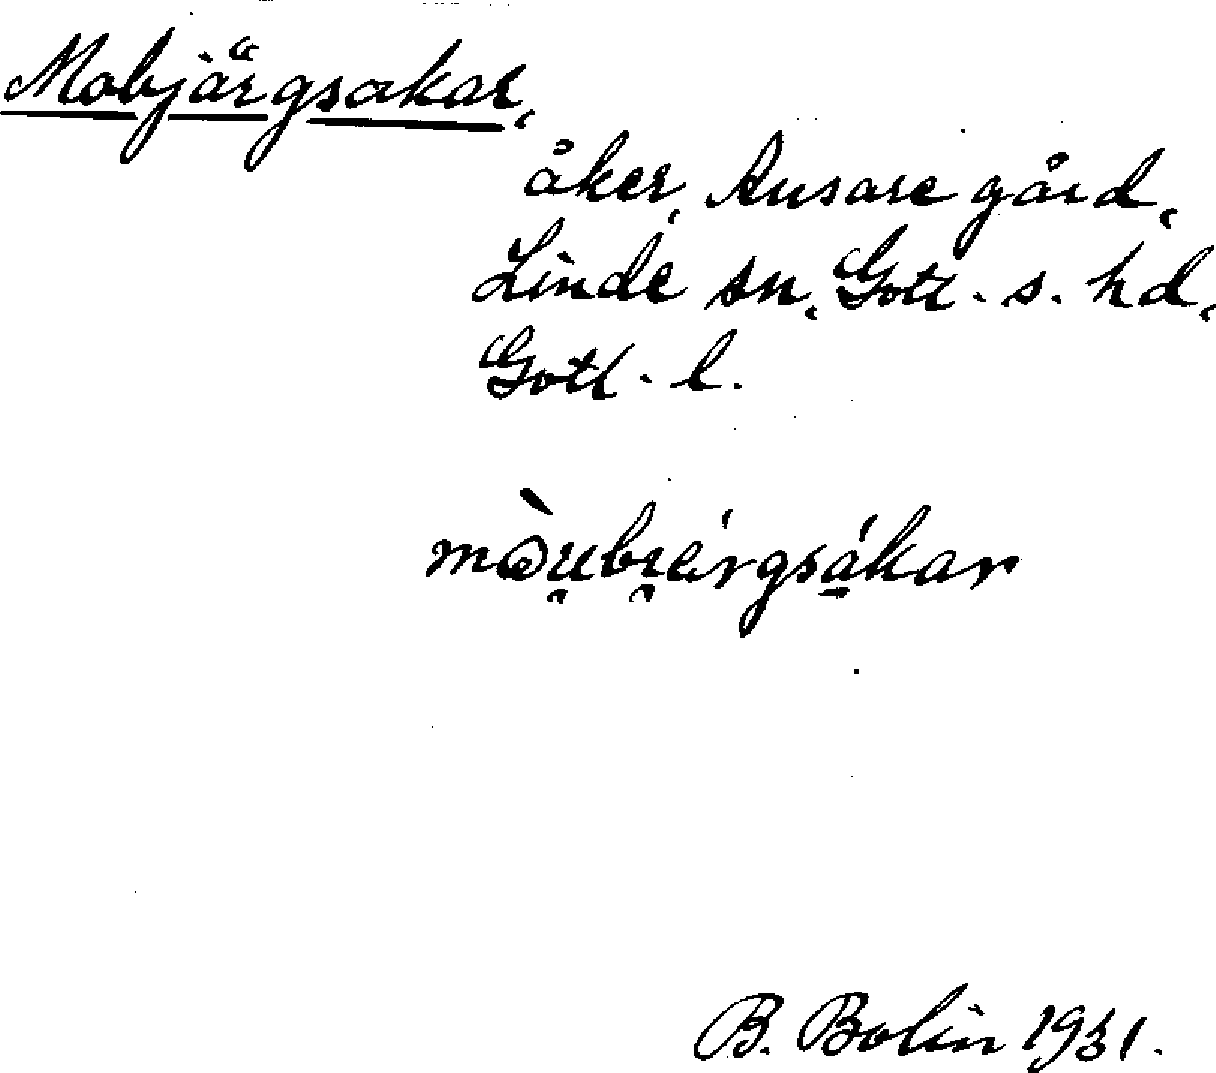 Mobjärgsakar,
åker, gård,
Linde sn, Gotl. s. hd,
Gotl. l.
mòu̯bi̯érgsá̱kar
B. Bolin 1931.